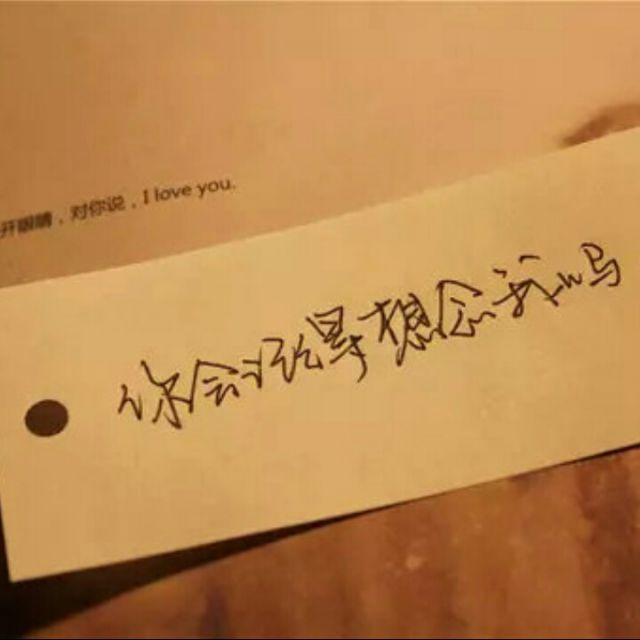 开眼睛，对你说，I love you.
你会沿寻想念我吗